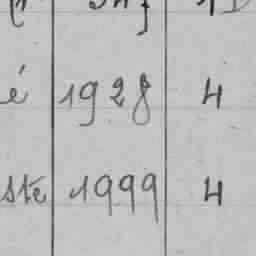 é 1928 4
ste 1999 4